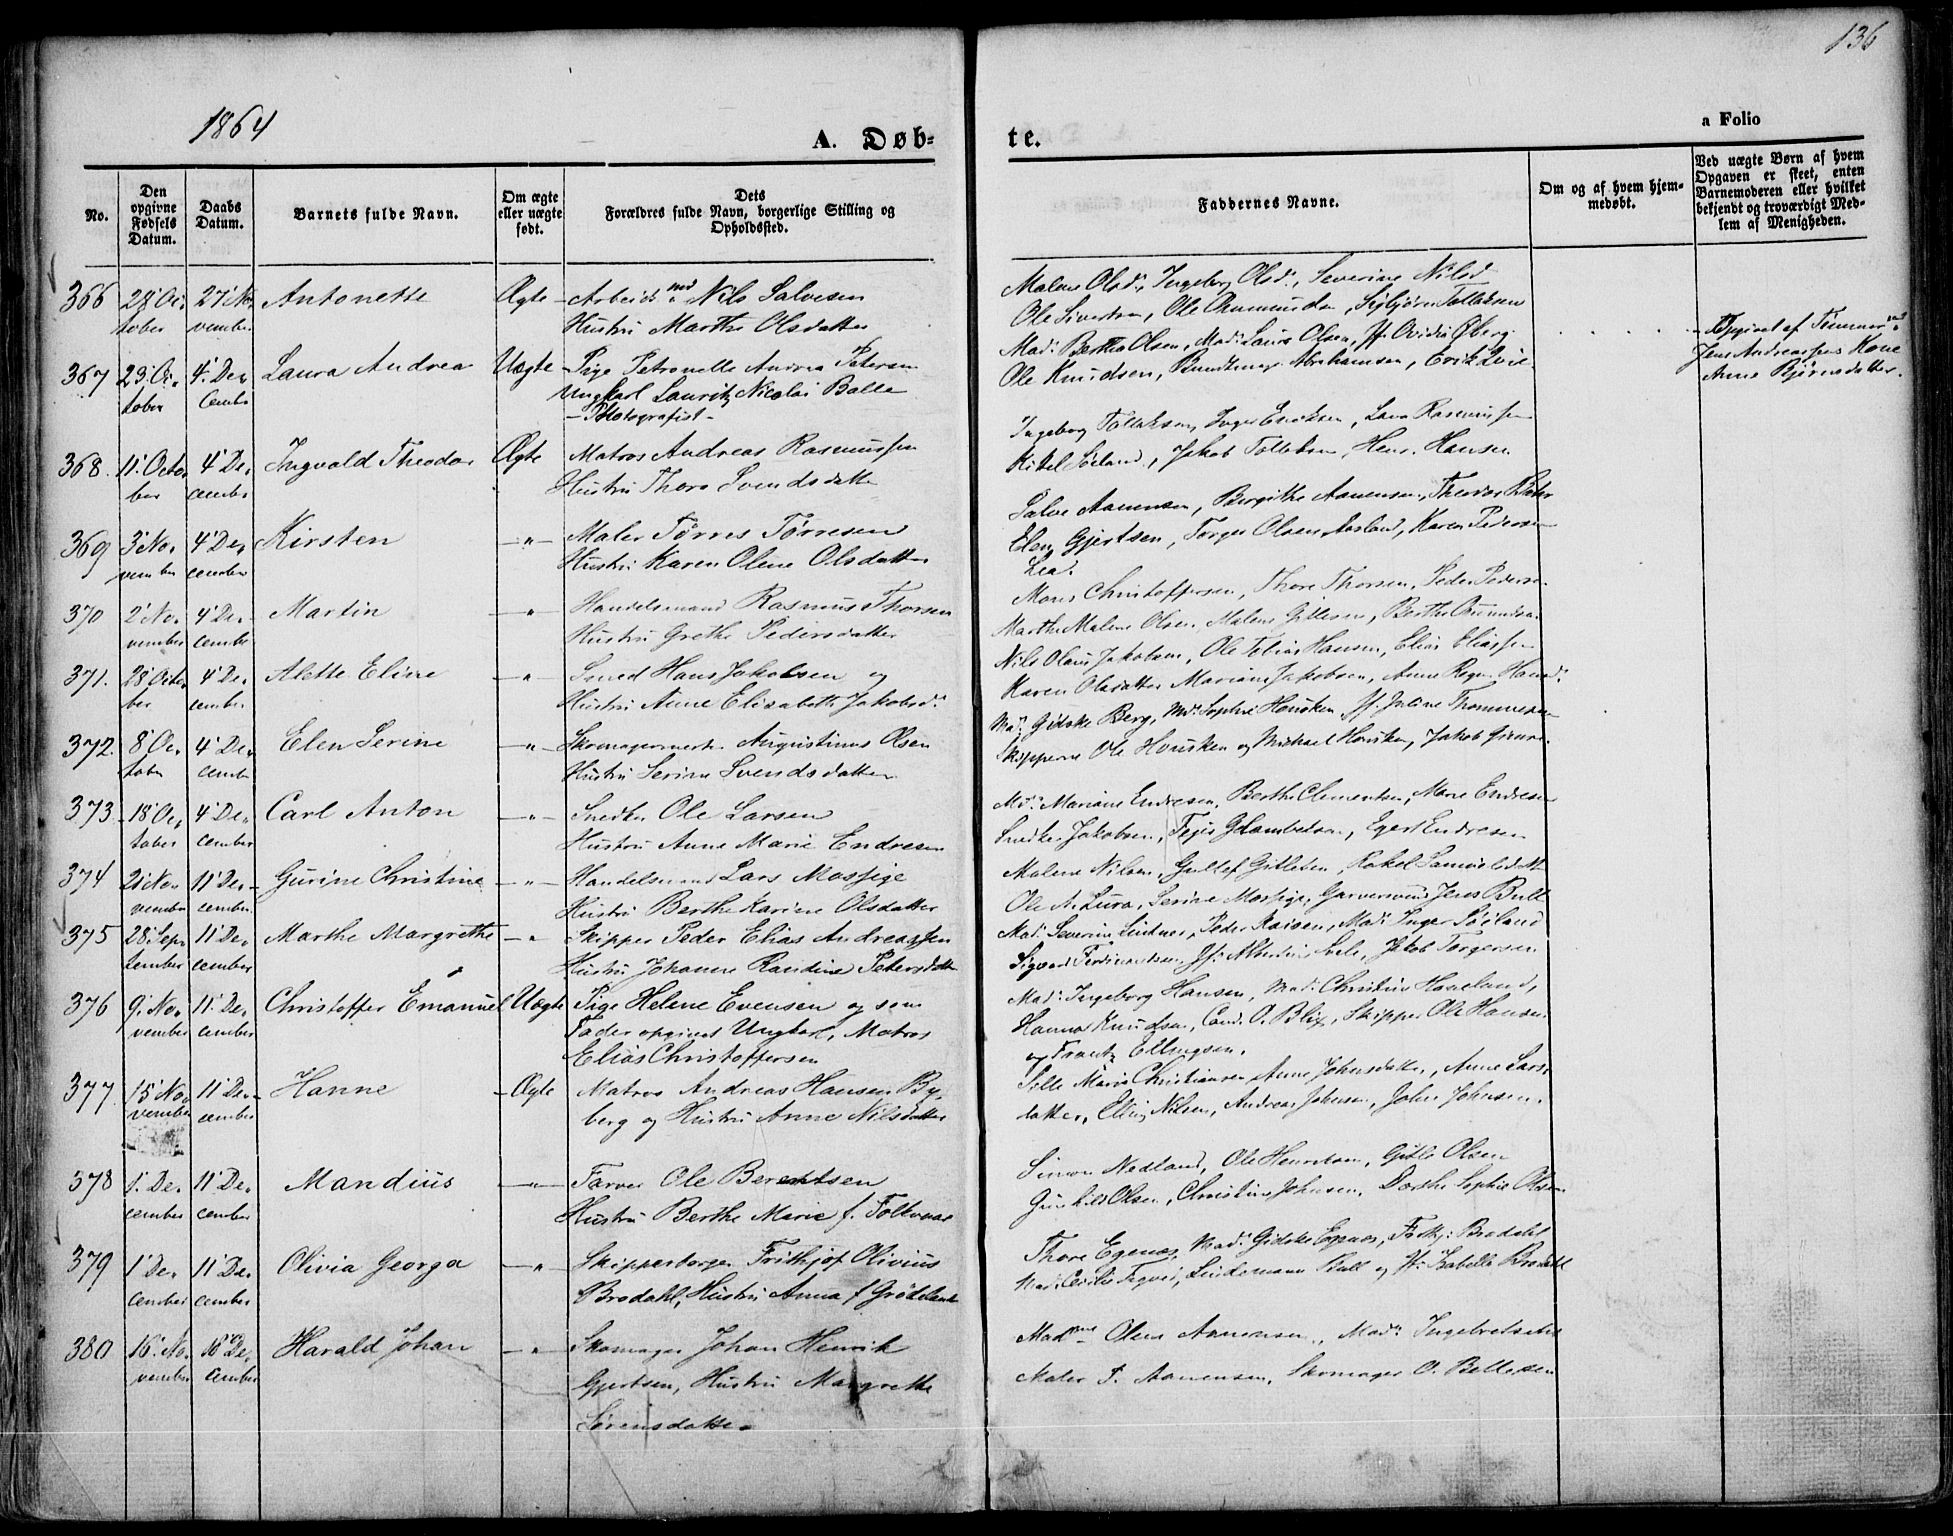 136
1864
A. Døb-
te.
a Folio
No.
Den opgivne Fødsels Datum.
Daabs Datum.
Barnets fulde Navn.
Om ægte eller uægte født.
Dets
Forældres fulde Navn, borgerlige Stilling og Opholdssted.
Faddernes Navne.
Om og af hvem hjemmedøbt.
Ved uægte Børn af hvem Opgaven er skeet, enten Barnemoderen eller hvilket bekjendt og troværdigt Medlem af Menigheden.
366 28' Oc, 27' No, Antonette Ægte Arbeidsmd Nils Salvesen
tober vember Hustru Marthe Olsdatter
Malene Olsd:, Ingeborg Olsd:, Severine Nilsd
Ole Sivertsen, Ole Aanmundsen, Sigbjørn Tollaksen
367 23' Oc, 4' De, Laura Andrea Uægte Pige Petronelle Andrea Petersen
tober cember Ungkarl Lauritz Nicolai Balle
- Photografist -
Mad: Bertha Olsen, Mad: Laura Olsen, Jf. Ovidia Øberg
Ole Knudsen, Abrahamsen, Erik
Opgivet af Tømmermd
Jens Andreassens Kone
Anne Bjørnsdatter.
368. 11' Octo 4' De, Ingvald Theodor Ægte Matros Andreas Rasmussen
ber cember Hustru Thora Svendsdatter
Ingeborg Tollaksen, Inger Eriksen, Lava Rasmussen
Kitel Søiland, Jakob Tollaksen, Henr. Hansen
369 3' No, 4' De, Kirsten -"- Maler Tørres Tørresen
vember cember Hustru Karen Olene Olsdatter
Salve Aanensen, Birgithe Aanensen, Theodor
Elen Gjertsen, Torger Olsen Aasland, Karen Pedersen
Lea.
370 2' No, 4' De, Martin -"- Handelsmand Rasmus Thorsen
vember cember Hustru Grethe Pedersdatter
Maren Christoffersen, Thore Thorsen, Peder Pedersen
Marthe Malene Olsen, Malene Gitlesen, Berthe
371. 28' Octo 4' De, Alette Eline -"- Smed Hans Jakobsen og
ber cember Hustru Anne Elisabeth Jakobsd:
Nils Olaus Jakobsen, Ole Tobias Hansen, Elias Eliassen
Karen Olsdatter Mariane Jakobsen, Anne Regn. Hansd:
372. 8' Oc, 4' De, Elen Serine -"- Skomagermester Augustinus Olsen
tober cember Hustru Serine Svendsdatter
Mad: Gidske Berg, Md: Sophie Housken, Jf. Juline Thommesen
Skipperne Ole Housken og Michael Housken, Jakob
373. 18' Oc, 4' De, Carl Anton -"- Snedker Ole Larsen
tober cember Hustru Anne Marie Endresen
Md: Mariane Endresen, Berthe Clementsen, Marie Endresen
Snedker Jakobsen, Lambertsen, Egert Endresen
374 21' No, 11' De, Gurine Christine -"- Handelsmand Lars Mossige
vember cember Hustru Berthe Karine Olsdatter
Malene Nilsen, Gitlesen, Rakel Samuelsdatter
Ole A. Lura, Serine Mossige, Garversvend Jens Bull
375 28' Sep, 11' De, Marthe Margrethe -"- Skipper Peder Elias Andreassen
tember cember Hustru Johanne Randine Petersdatter
Mad: Severine Lintner, Peder Raisen, Mad: Inger Søiland
Sigvard Ferdinandsen, Jf: Albertine Svele, Jakob Torgersen
376 9' No, 11' De, Christoffer Emanuel Uægte Pige Helene Evensen og som
vember cember Fader opgivet Ungkarl, Matros
Elias Christoffersen
Mad: Ingeborg Hansen, Mad: Christine Haveland,
Hanna Knudsen, Cand. O. Blix, Skipper Ole Hansen
og Frantz Ellingsen.
377. 15' No, 11' De, Hanne Ægte Matros Andreas Hansen By,
vember cember berg og Hustru Anne Nilsdatter
Sille Maria Christiansen, Anne Johnsdatter, Anne Lars
datter, Elling Nilsen, Andreas Johnsen, John Johnsen.
378 1' De, 11' De, Mandius -"- Farver Ole Berentsen
cember cember Hustru Berthe Marie f. Foltmar
Simon Nedland, Ole Henriksen, Gitle Olsen
Gunhild Olsen, Christine Johnsen, Dorthe Sophie Olsen
379 1' De, 11' De, Olivia Georga -"- Skipperborger Frithjof Olivius
cember cember Brodahl, Hustru Anna f Grødeland
Thore Egenæs, Mad: Gidske Egenæs, Brodahl
Mad: Cecilie Tegvei, Lindemann Bull og Jf: Isabella Brodahl
380 16' No, 18' De, Harald Johan -"- Skomager Johan Henrik
vember cember Gjertsen, Hustru Margrethe
Sørensdatter
Madme Olene Aanensen, Mad: Ingebretsen
Maler P. Aanensen, Skomager O. Bellesen